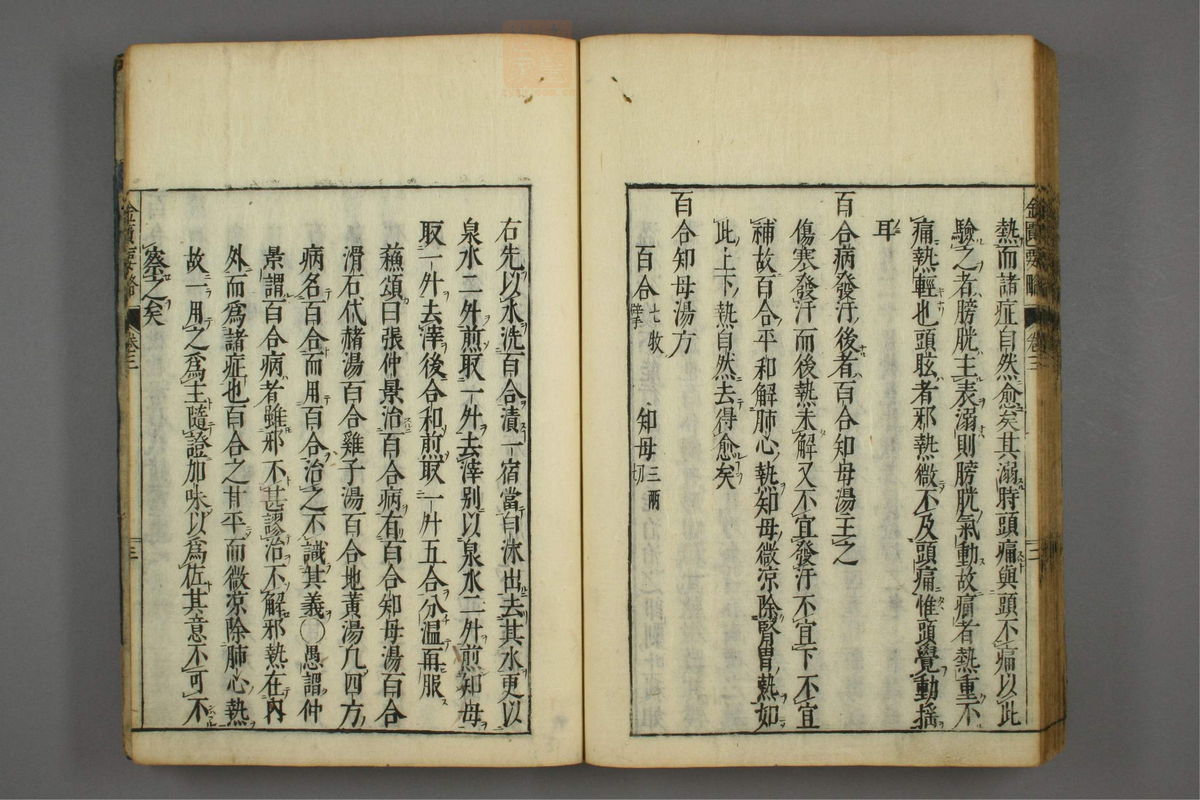 熱而諸症自然愈矣其溺時頭痛與頭不痛以此
驗之者膀胱主表溺則膀胱氣動故痛者熱重不
痛熱輕也頭眩者邪熱微不及頭痛惟頭覺動搖
耳
百合病發汗後者百合知母湯主之
傷寒發汗而後熱未解又不宜發汗不宜下不宜
補故百合平和解肺心熱知母微涼除腎胃熱如
此上下熱自然去得愈矣
百合知母湯方
百合七枚擘 知母三兩切
右先以水洗百合漬一宿當白沫出去其水更以
泉水二升煎取一升去滓別以泉水二升煎知母
取一升去滓後合和煎取一升五合分溫再服
蘓頌曰張仲景治百合病有百合知母湯百合
滑石代赭湯百合雞子湯百合地黃湯凢四方
病名百合而用百合治之不識其義〇愚謂仲
景謂百合病者雖邪不甚謬治不解邪熱在內
外而爲諸症也百合之甘平而微凉除肺心熱
故一用之爲主隨證加味以爲佐其意不可不
察之矣
金匱要略 卷三 三